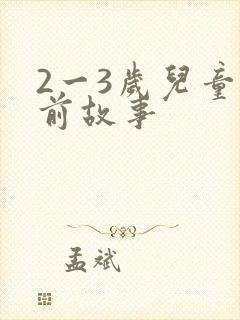 2一3歲兒童
前故事
孟斌